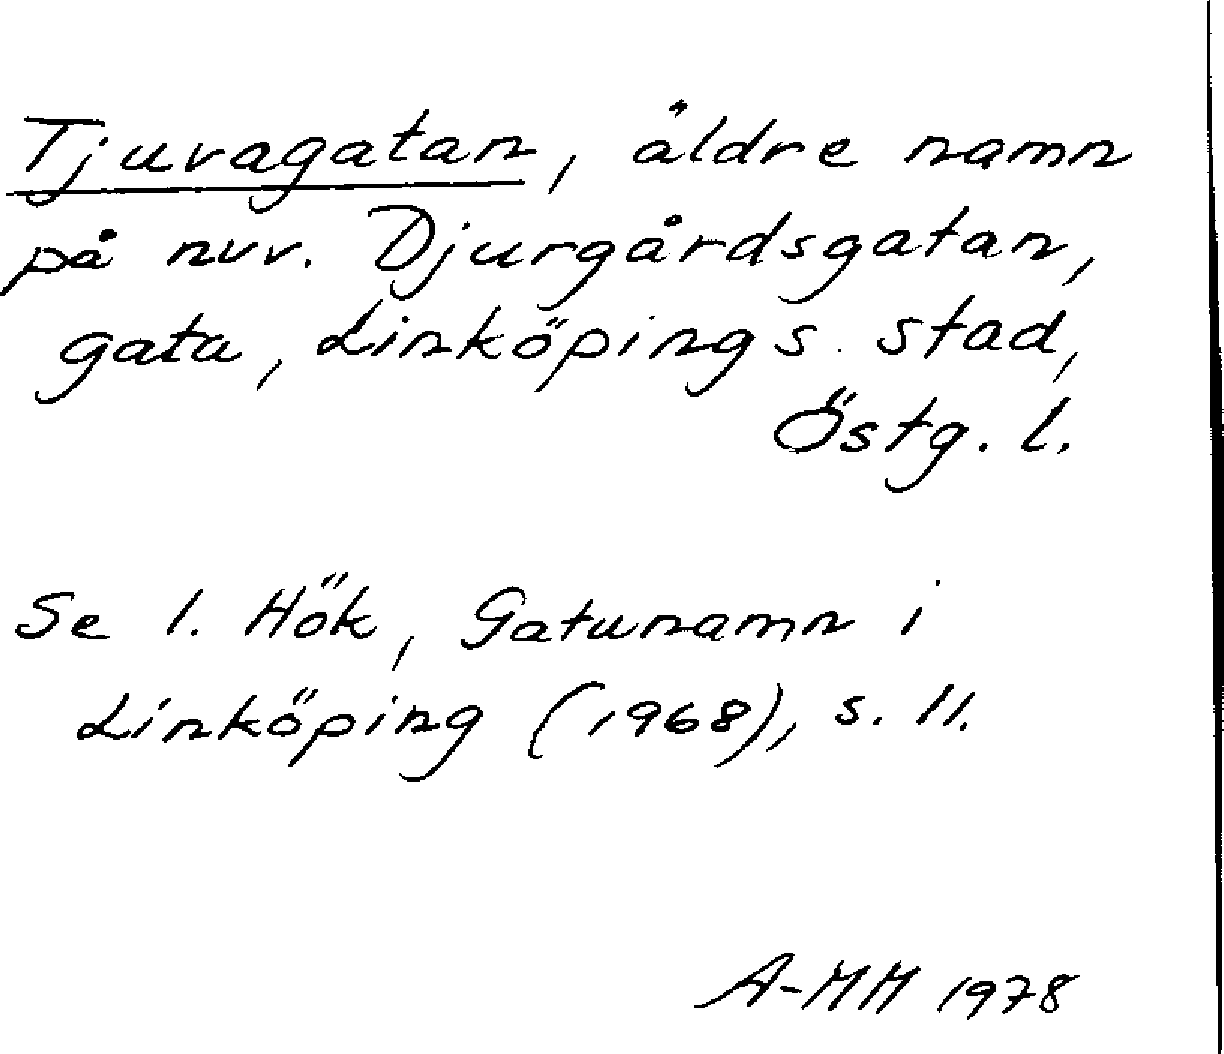 Tjuvagatan, äldre namn
på nuv. Djurgårdsgatan,
gata, Linköpings stad,
Östg. l.
Se I. Hök, Gatunamn i
Linköping (1968), s. 11.
A-MM 1978